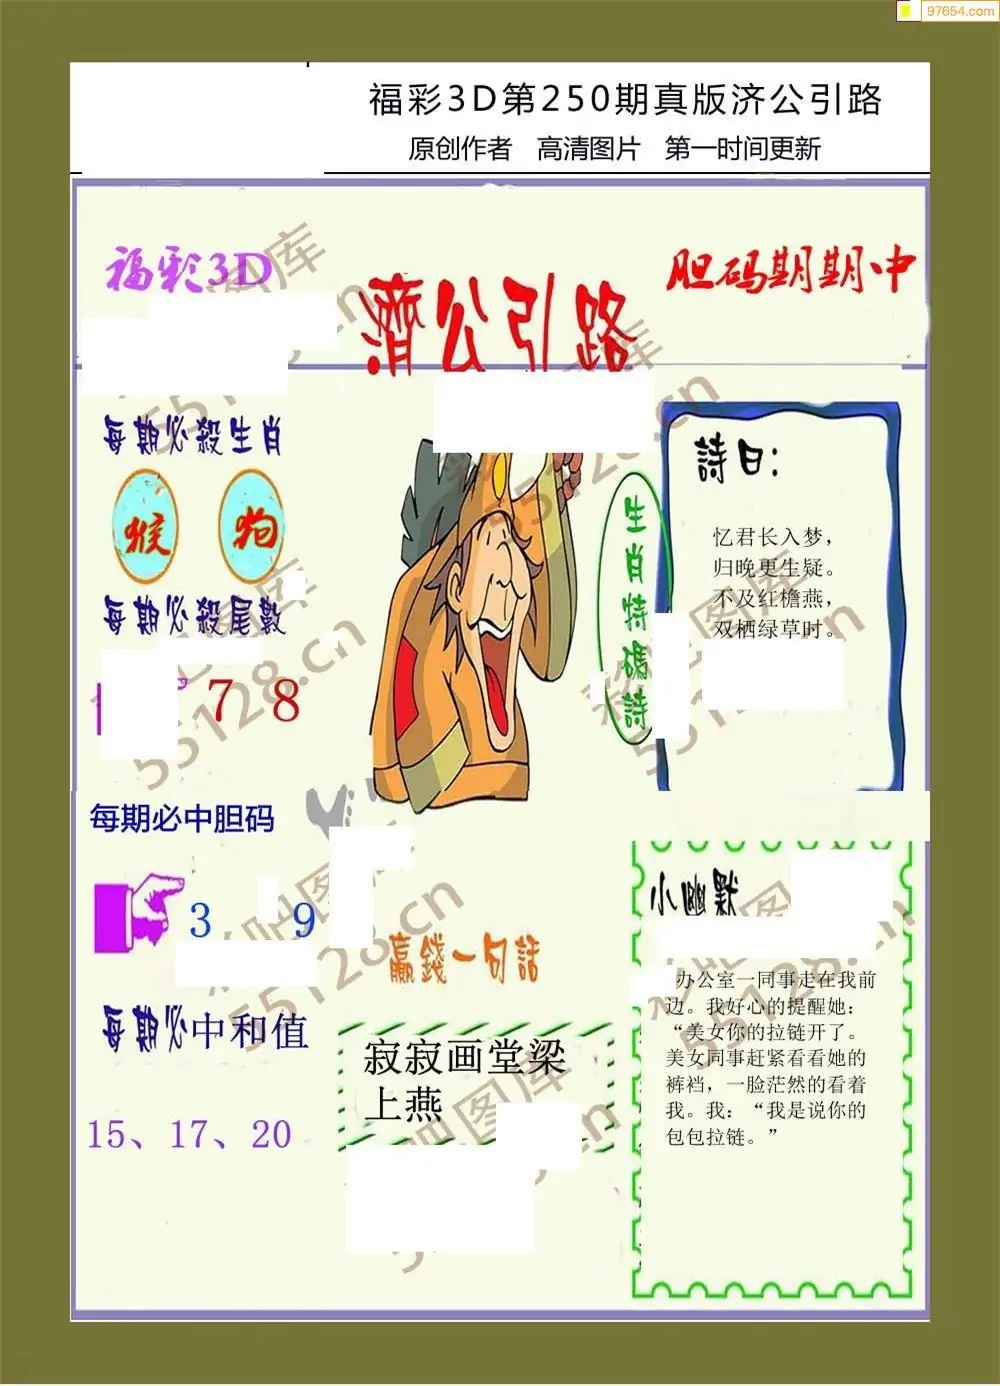 97654.com
福彩3D第250期真版济公引路
原创作者 高清图片 第一时间更新
福彩3D
濟公引路
胆码期期中
每期必殺生肖
猴 狗
每期必殺尾數
7 8
每期必中胆码
3 9
每期必中和值
15、17、20
生肖特碼詩
詩曰：
忆君长入梦，
归晚更生疑。
不及红檐燕，
双栖绿草时。
贏錢一句話
寂寂画堂梁
上燕
小幽默
办公室一同事走在我前
边。我好心的提醒她：
“美女你的拉链开了。
美女同事赶紧看看她的
裤裆，一脸茫然的看着
我。我：“我是说你的
包包拉链。”
55128.cn
55128.cn
55128.cn
55128.cn